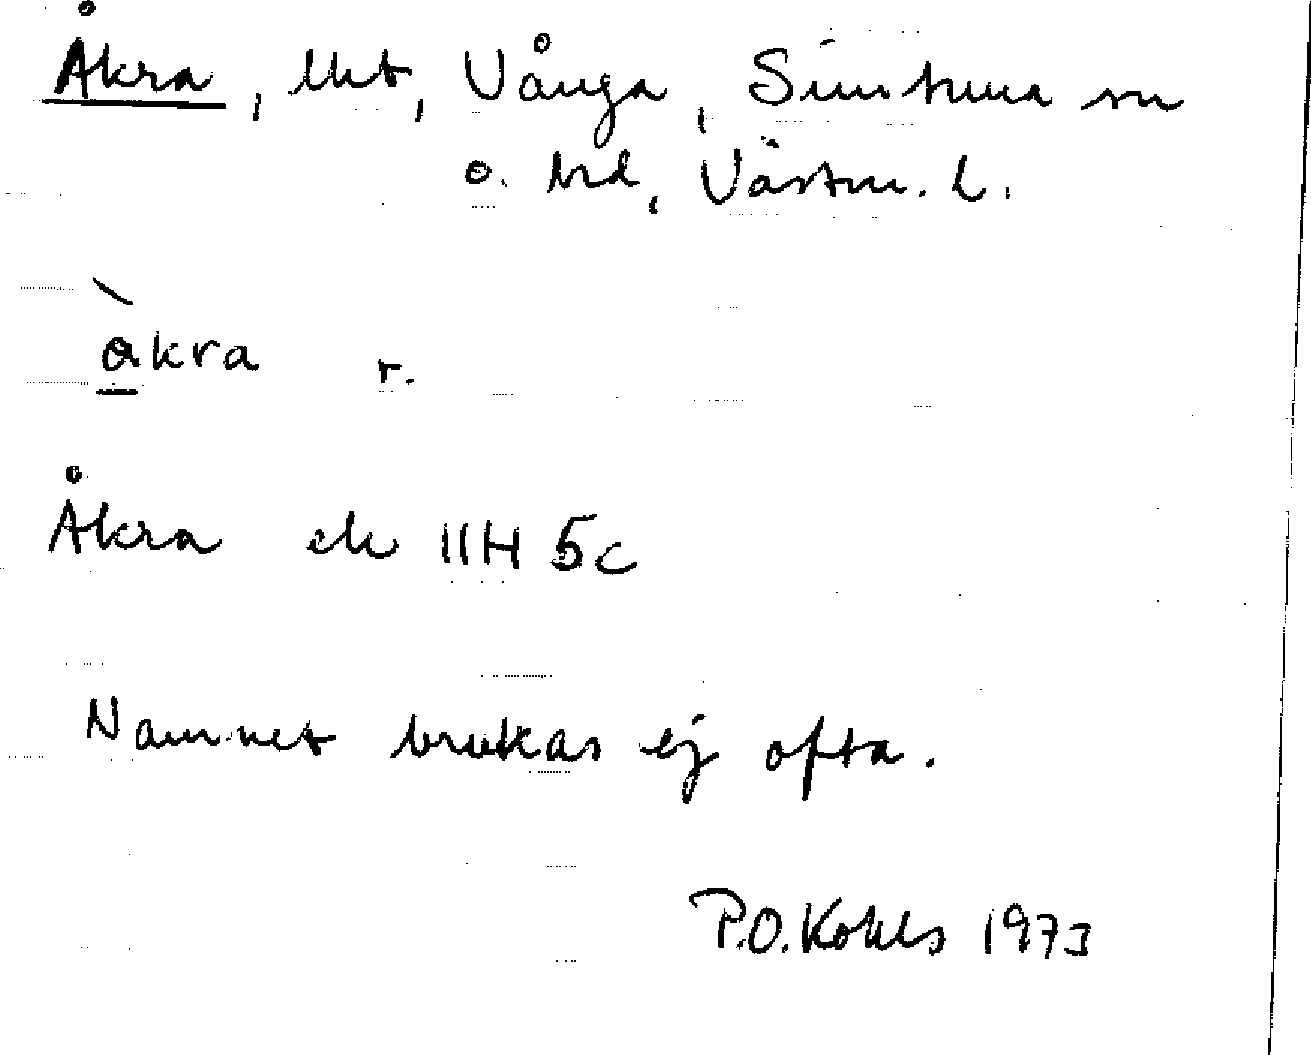 Åkra, lht, Vånga, Simtuna sn
o. hd, Västm. l.
àkra r.
Åkra ek 11H 5c
Namnet brukas ej ofta.
P.O. Kohls 1973